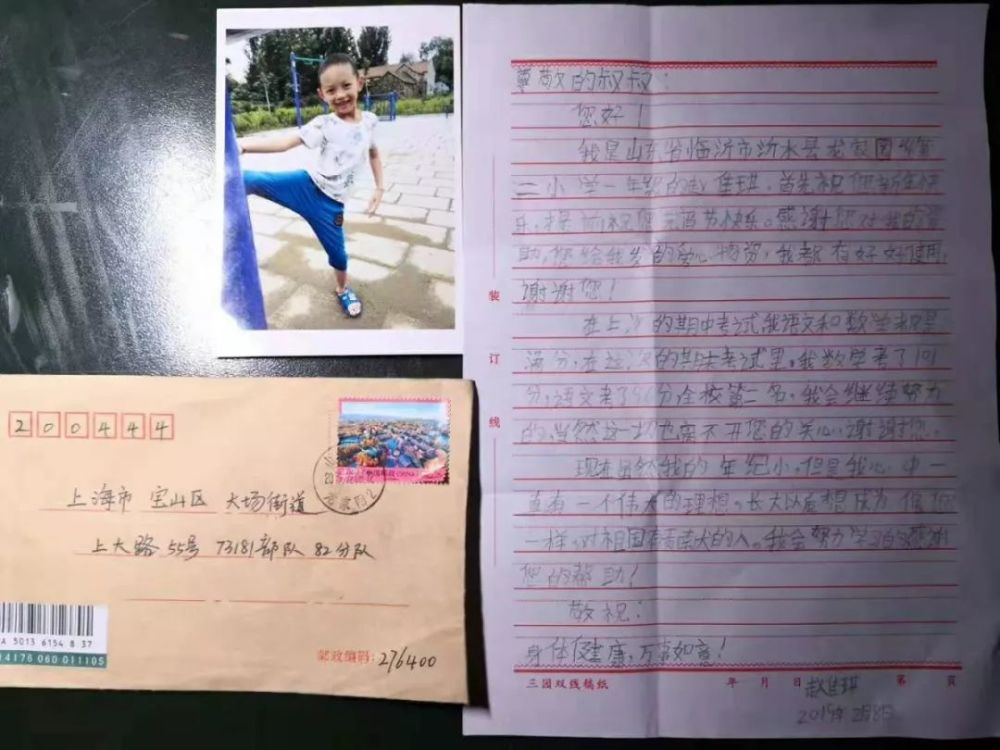 尊敬的叔叔：
您好！
我是山东省临沂市沂水县龙家圈
二小学一年级的赵佳琪，首先祝您新年快
乐，提前祝您元宵节快乐。感谢您对我的帮
助，您给我发的爱心物资，我都有好好使用，
谢谢您！
在上次的期中考试我语文和数学都是
满分，在这次的期末考试里，我数学考了101
分，语文考了 分全校第二名，我会继续努力
的，当然这一切也离不开您的关心，谢谢您。
现在虽然我的年纪小，但是我心中一
直有一个伟大的理想，长大以后想成为像您
一样，对祖国有贡献的人。我会努力学习的，感谢
您的帮助！
敬祝：
身体健康，万事如意！
赵佳琪
2019年2月8日
装
订
线
三园双线稿纸
年 月 日 第 页
200444
上海市 宝山区 大场街道
上大路 55号 73181部队 82分队
邮政编码：276400
A 5013 6154 8 37
14176 060 011105